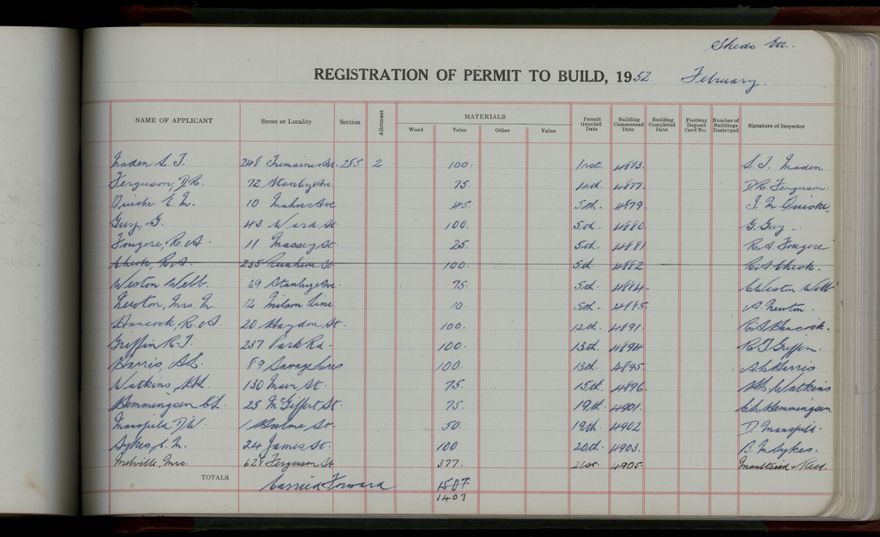 Sheds Etc.
REGISTRATION OF PERMIT TO BUILD, 1952 February
MATERIALS
NAME OF APPLICANT Street or Locality Section Allotment Wood Value Other Value Permit Granted Date Building Commenced Date Building Completed Date Footway Deposit Card No. Number of Buildings Destroyed Signature of Inspector
Maden S. T. 248 Tremaine Ave. 255 2 100. 1st. 4873. S. T. Maden
Ferguson, D.R. 72 Stanley Ave 75. 4877. D.R. Ferguson.
Quicke E. M. 10 Ave 45. 5th. 4879. Quicke.
Guy, G. 43 Ward St 100. 5th. 4880. G. Guy.
Fougere, R. A. 11 Massey St 25 5th. 4881 R. A. Fougere
235 St 100. 5th. 4882
Weston Webb. 69 Stanley Ave. 75. 5th. 4884. Weston Webb
Newton, Mrs. M. 12 Milson Line 10. 5th. 4885. Newton.
Hancock, R. A. 20 Haydon St. 100. 12th. 4891. R. A. Hancock.
Griffin R. T. 237 Park Rd. 100. 13th. 4894. R. T. Griffin.
Harris, A.L. 89 Savage Cres 100. 13th. 4895. A. L. Harris
Watkins, 130 Main St. 75. 15th. 4896. Watkins
Hemmingsen C.L. 25 McGiffert St. 75. 19th. 4901. C.L. Hemmingsen
Mansfield D.W. 1 St. 50. 19th. 4902 D. Mansfield.
Sykes, 24 James St. 100 20th. 4903. B. M. Sykes.
Melville, Mrs. 628 Ferguson St 377. 21st. 4905.
TOTALS Carried Forward 1507
1407